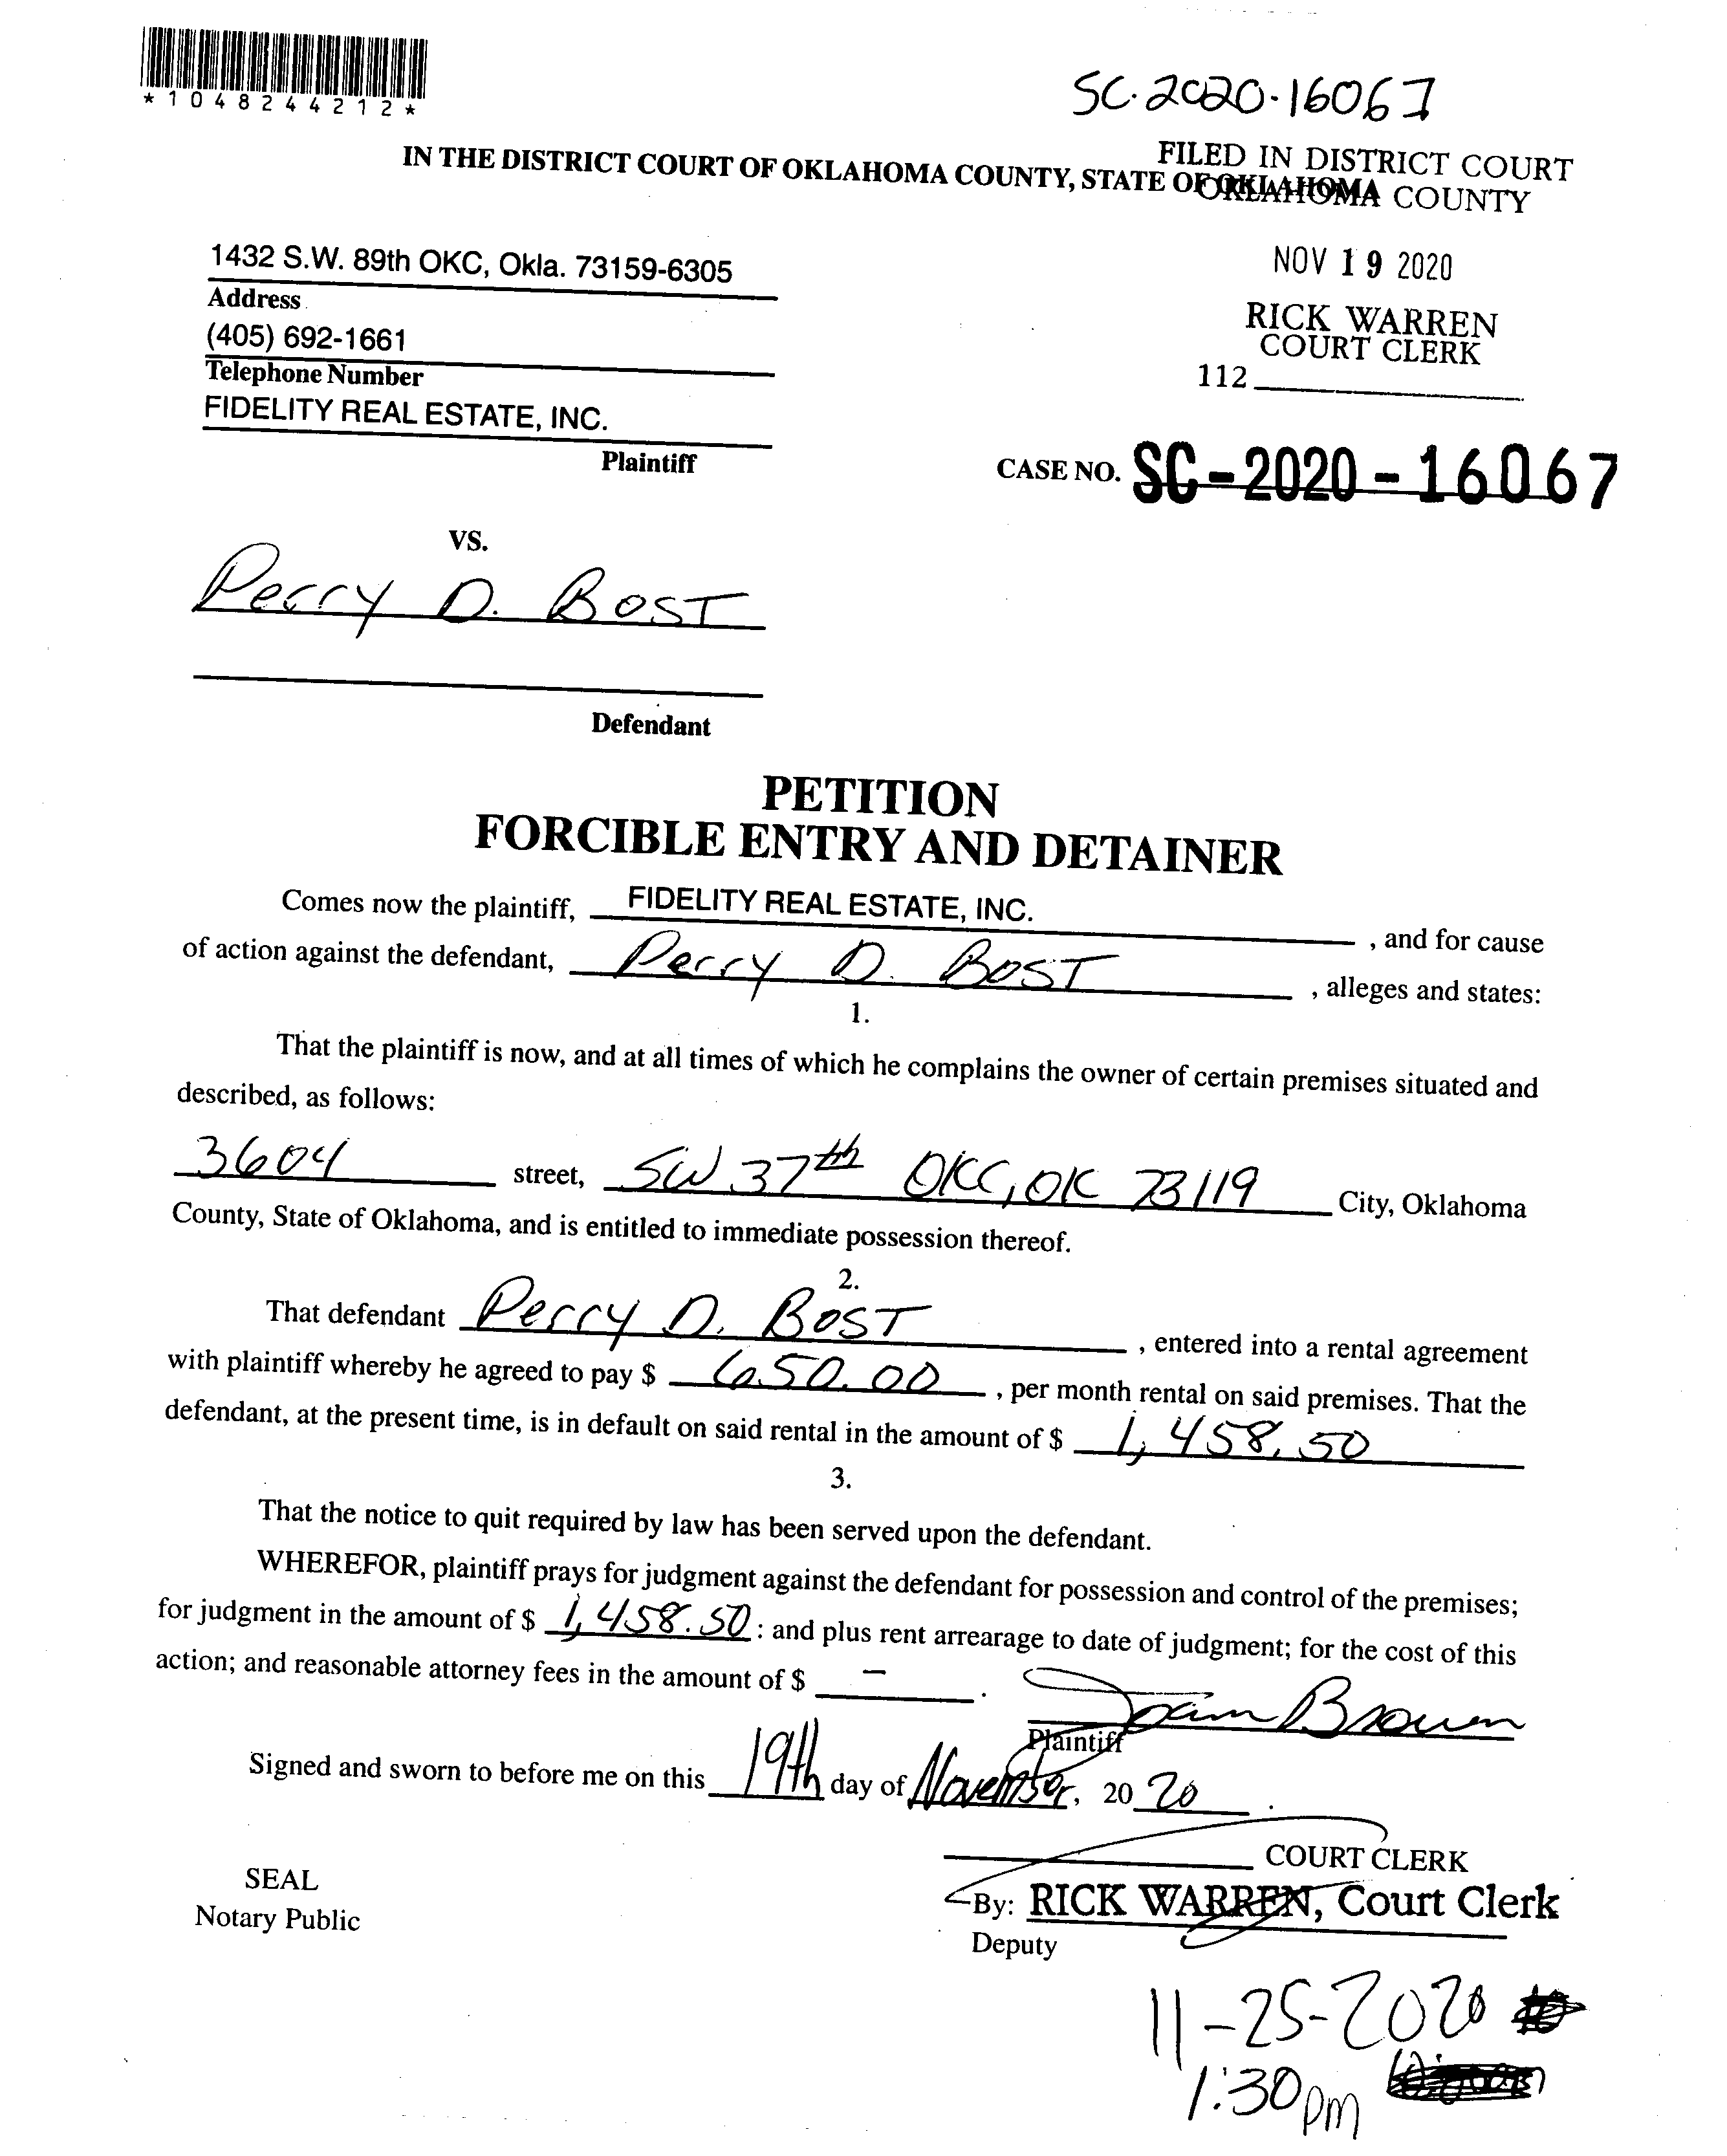 *1048244212*
SC-2020-16067
IN THE DISTRICT COURT OF OKLAHOMA COUNTY, STATE OF OKLAHOMA
FILED IN DISTRICT COURT
OKLAHOMA COUNTY
1432 S.W. 89th OKC, Okla. 73159-6305
Address
NOV 19 2020
(405) 692-1661
Telephone Number
RICK WARREN
COURT CLERK
112
FIDELITY REAL ESTATE, INC.
Plaintiff
CASE NO. SC-2020-16067
VS.
Perry D. Bost
Defendant
PETITION
FORCIBLE ENTRY AND DETAINER
Comes now the plaintiff, FIDELITY REAL ESTATE, INC. , and for cause
of action against the defendant, Perry D. Bost , alleges and states:
1.
That the plaintiff is now, and at all times of which he complains the owner of certain premises situated and
described, as follows:
3604 street, SW 37th OKC, OK 73119 City, Oklahoma
County, State of Oklahoma, and is entitled to immediate possession thereof.
2.
That defendant Perry D. Bost , entered into a rental agreement
with plaintiff whereby he agreed to pay $ 650.00 , per month rental on said premises. That the
defendant, at the present time, is in default on said rental in the amount of $ 1,458.50
3.
That the notice to quit required by law has been served upon the defendant.
WHEREFOR, plaintiff prays for judgment against the defendant for possession and control of the premises;
for judgment in the amount of $ 1,458.50 : and plus rent arrearage to date of judgment; for the cost of this
action; and reasonable attorney fees in the amount of $ – .
Brown
Plaintiff
Signed and sworn to before me on this 19th day of November, 20 20 .
COURT CLERK
SEAL
Notary Public
By: RICK WARREN, Court Clerk
Deputy
11-25-2020
1:30pm